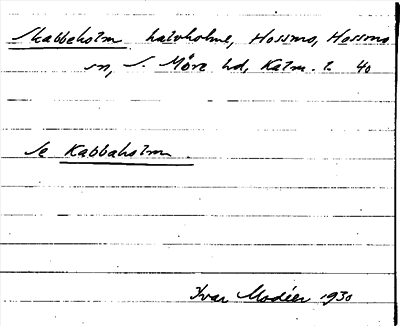 Skabbeholm halvholme, Hossmo, Hossmo
sn, S. Möre hd, Kalm. l. 40
Se Kabbaholm.
Ivar Modéer 1930